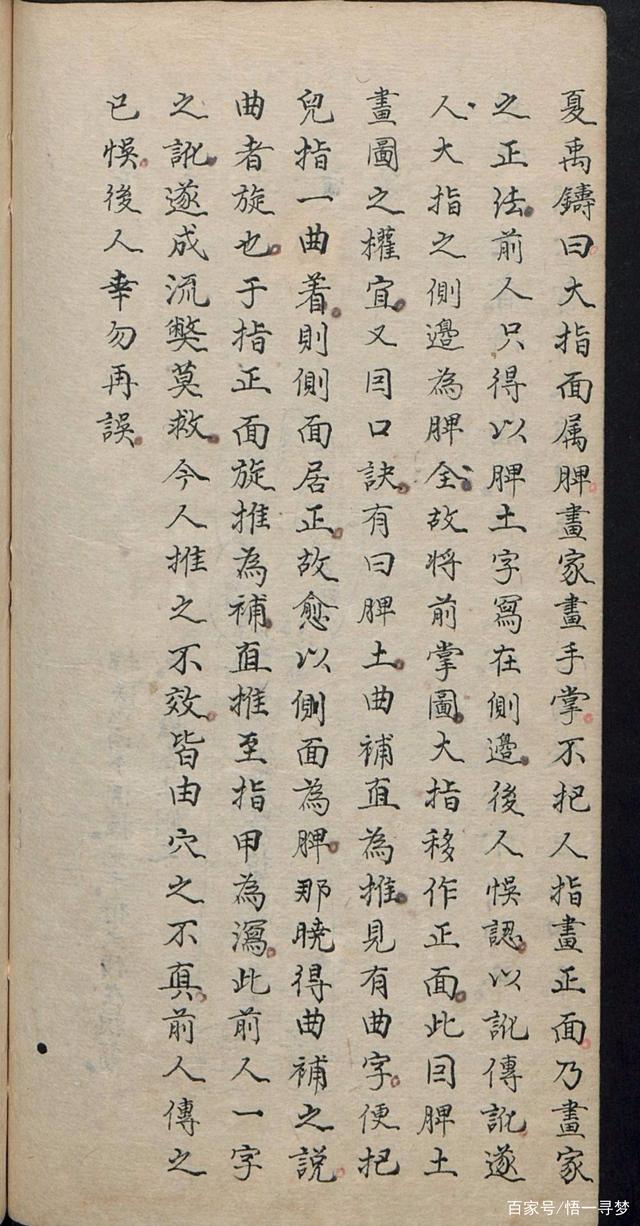 夏禹鑄曰大指面属脾畫家畫手掌不把人指畫正面乃畫家
之正法前人只得以脾土字寫在側邉後人悮認以訛傳訛遂
人大指之側邉為脾全故将前掌圖大指移作正面此囙脾土
畫圖之權宜又囙口訣有曰脾土曲補直為推見有曲字便把
兒指一曲着則側面居正故愈以側面為脾那曉得曲補之説
曲者旋也于指正面旋推為補直推至指甲為瀉此前人一字
之訛遂成流獘莫救今人推之不效皆由穴之不真前人傳之
已悮後人幸勿再誤
百家号/悟一寻梦